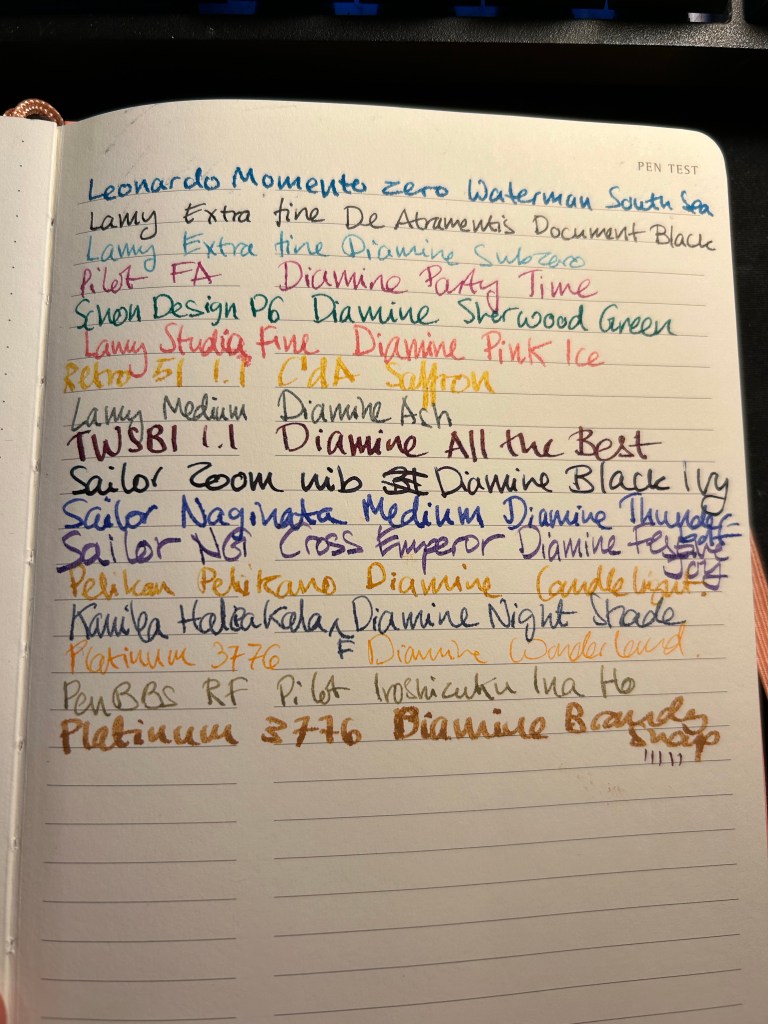 PEN TEST
Leonardo Momento zero Waterman South Sea
Lamy Extra fine De Atramentis Document Black
Lamy Extra fine Diamine Subzero
Pilot FA Diamine Party Time
Schon Design P6 Diamine Sherwood Green
Lamy Studio Fine Diamine Pink Ice
Retro 51 1.1 CdA Saffron
Lamy Medium Diamine Ash
TWSBI 1.1 Diamine All the Best
Sailor Zoom nib Diamine Black Ivy
Sailor Naginata Medium Diamine Thunder-
bolt
Sailor NGT Cross Emperor Diamine Festive
Joy
Pelikan Pelikano Diamine Candle light.
Kanilea Haleakala F Diamine Night Shade
Platinum 3776 Diamine Wonderland.
PenBBS RF Pilot Iroshizuku Ina Ho
Platinum 3776 Diamine Brandy
Snap